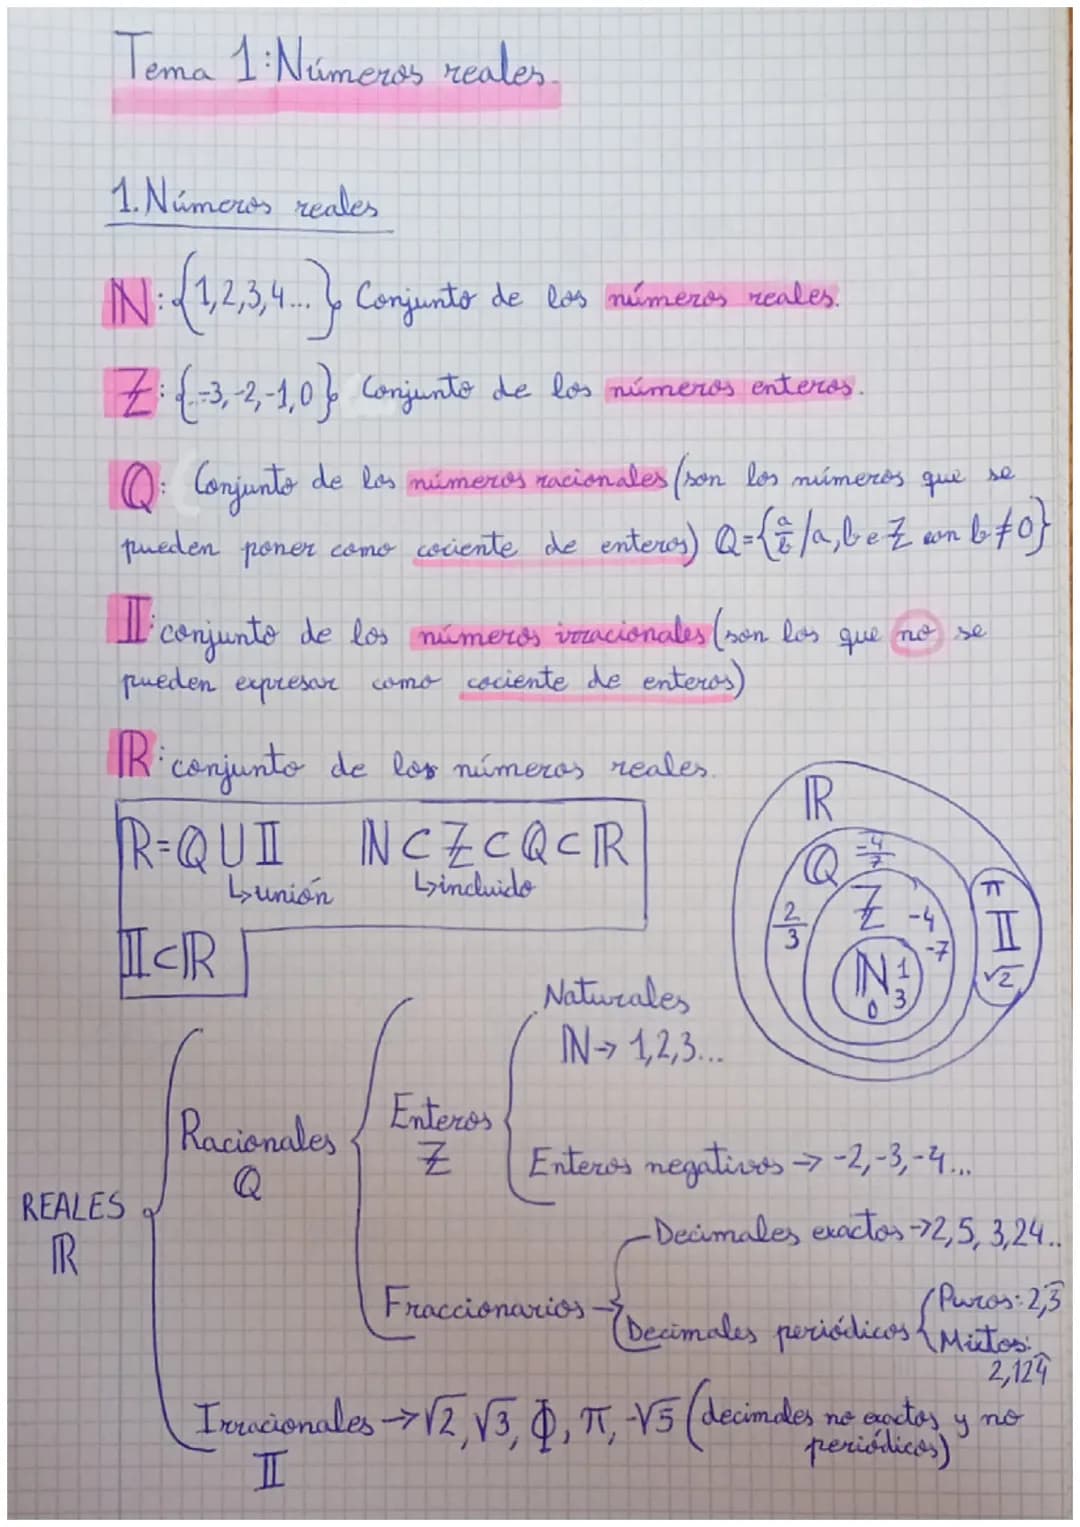 Tema 1: Números reales.
1. Números reales
ℕ: {1,2,3,4...} Conjunto de los números reales.
ℤ: {..-3,-2,-1,0} Conjunto de los números enteros.
ℚ: Conjunto de los números racionales (son los números que se
pueden poner como cociente de enteros) ℚ={a/b / a,b e ℤ con b≠0}
𝕀: conjunto de los números irracionales (son los que no se
pueden expresar como cociente de enteros)
ℝ: conjunto de los números reales.
ℝ=ℚ∪𝕀 ℕ⊂ℤ⊂ℚ⊂ℝ
↳unión ↳incluido
𝕀⊂ℝ
ℝ
ℚ -4/7
2/3 ℤ -4 π
-7 𝕀
ℕ 1 √2
0 3
Naturales
ℕ→ 1,2,3...
Enteros
ℤ
Enteros negativos → -2,-3,-4...
Racionales
ℚ
REALES
ℝ
Decimales exactos →2,5, 3,24..
Fraccionarios
Puros: 2,3̂
Decimales periódicos
Mixtos:
2,124̂
Irracionales → √2, √3, Φ, π, -√5 (decimales no exactos y no
periódicos)
𝕀